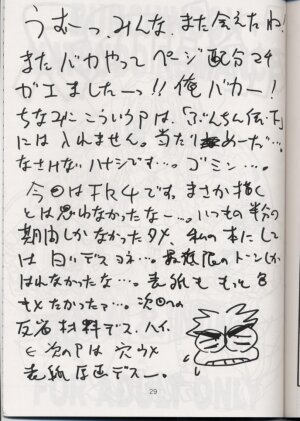 うおーっ、みんな、また会えたね!
またバカやってページ配分マチ
ガエましたーっ!!俺バカー!
ちなみにこういうPは、「ぶんちん伝下」
には入れません。当たりめーだ…。
なさけないハナシです…。ゴミン…。
今回はFR4です。まさか描く
とは思わなかったなー…。いつもの半分の
期間しかなかったタメ、私の本にして
は白いデスヨネ…。最低限のトーンしか
はれなかったな…。表紙ももっと色
もメたかったァ…。次回への
反省材料デス、ハイ。
∈次のPは穴ウメ
表紙原画デスー。
29